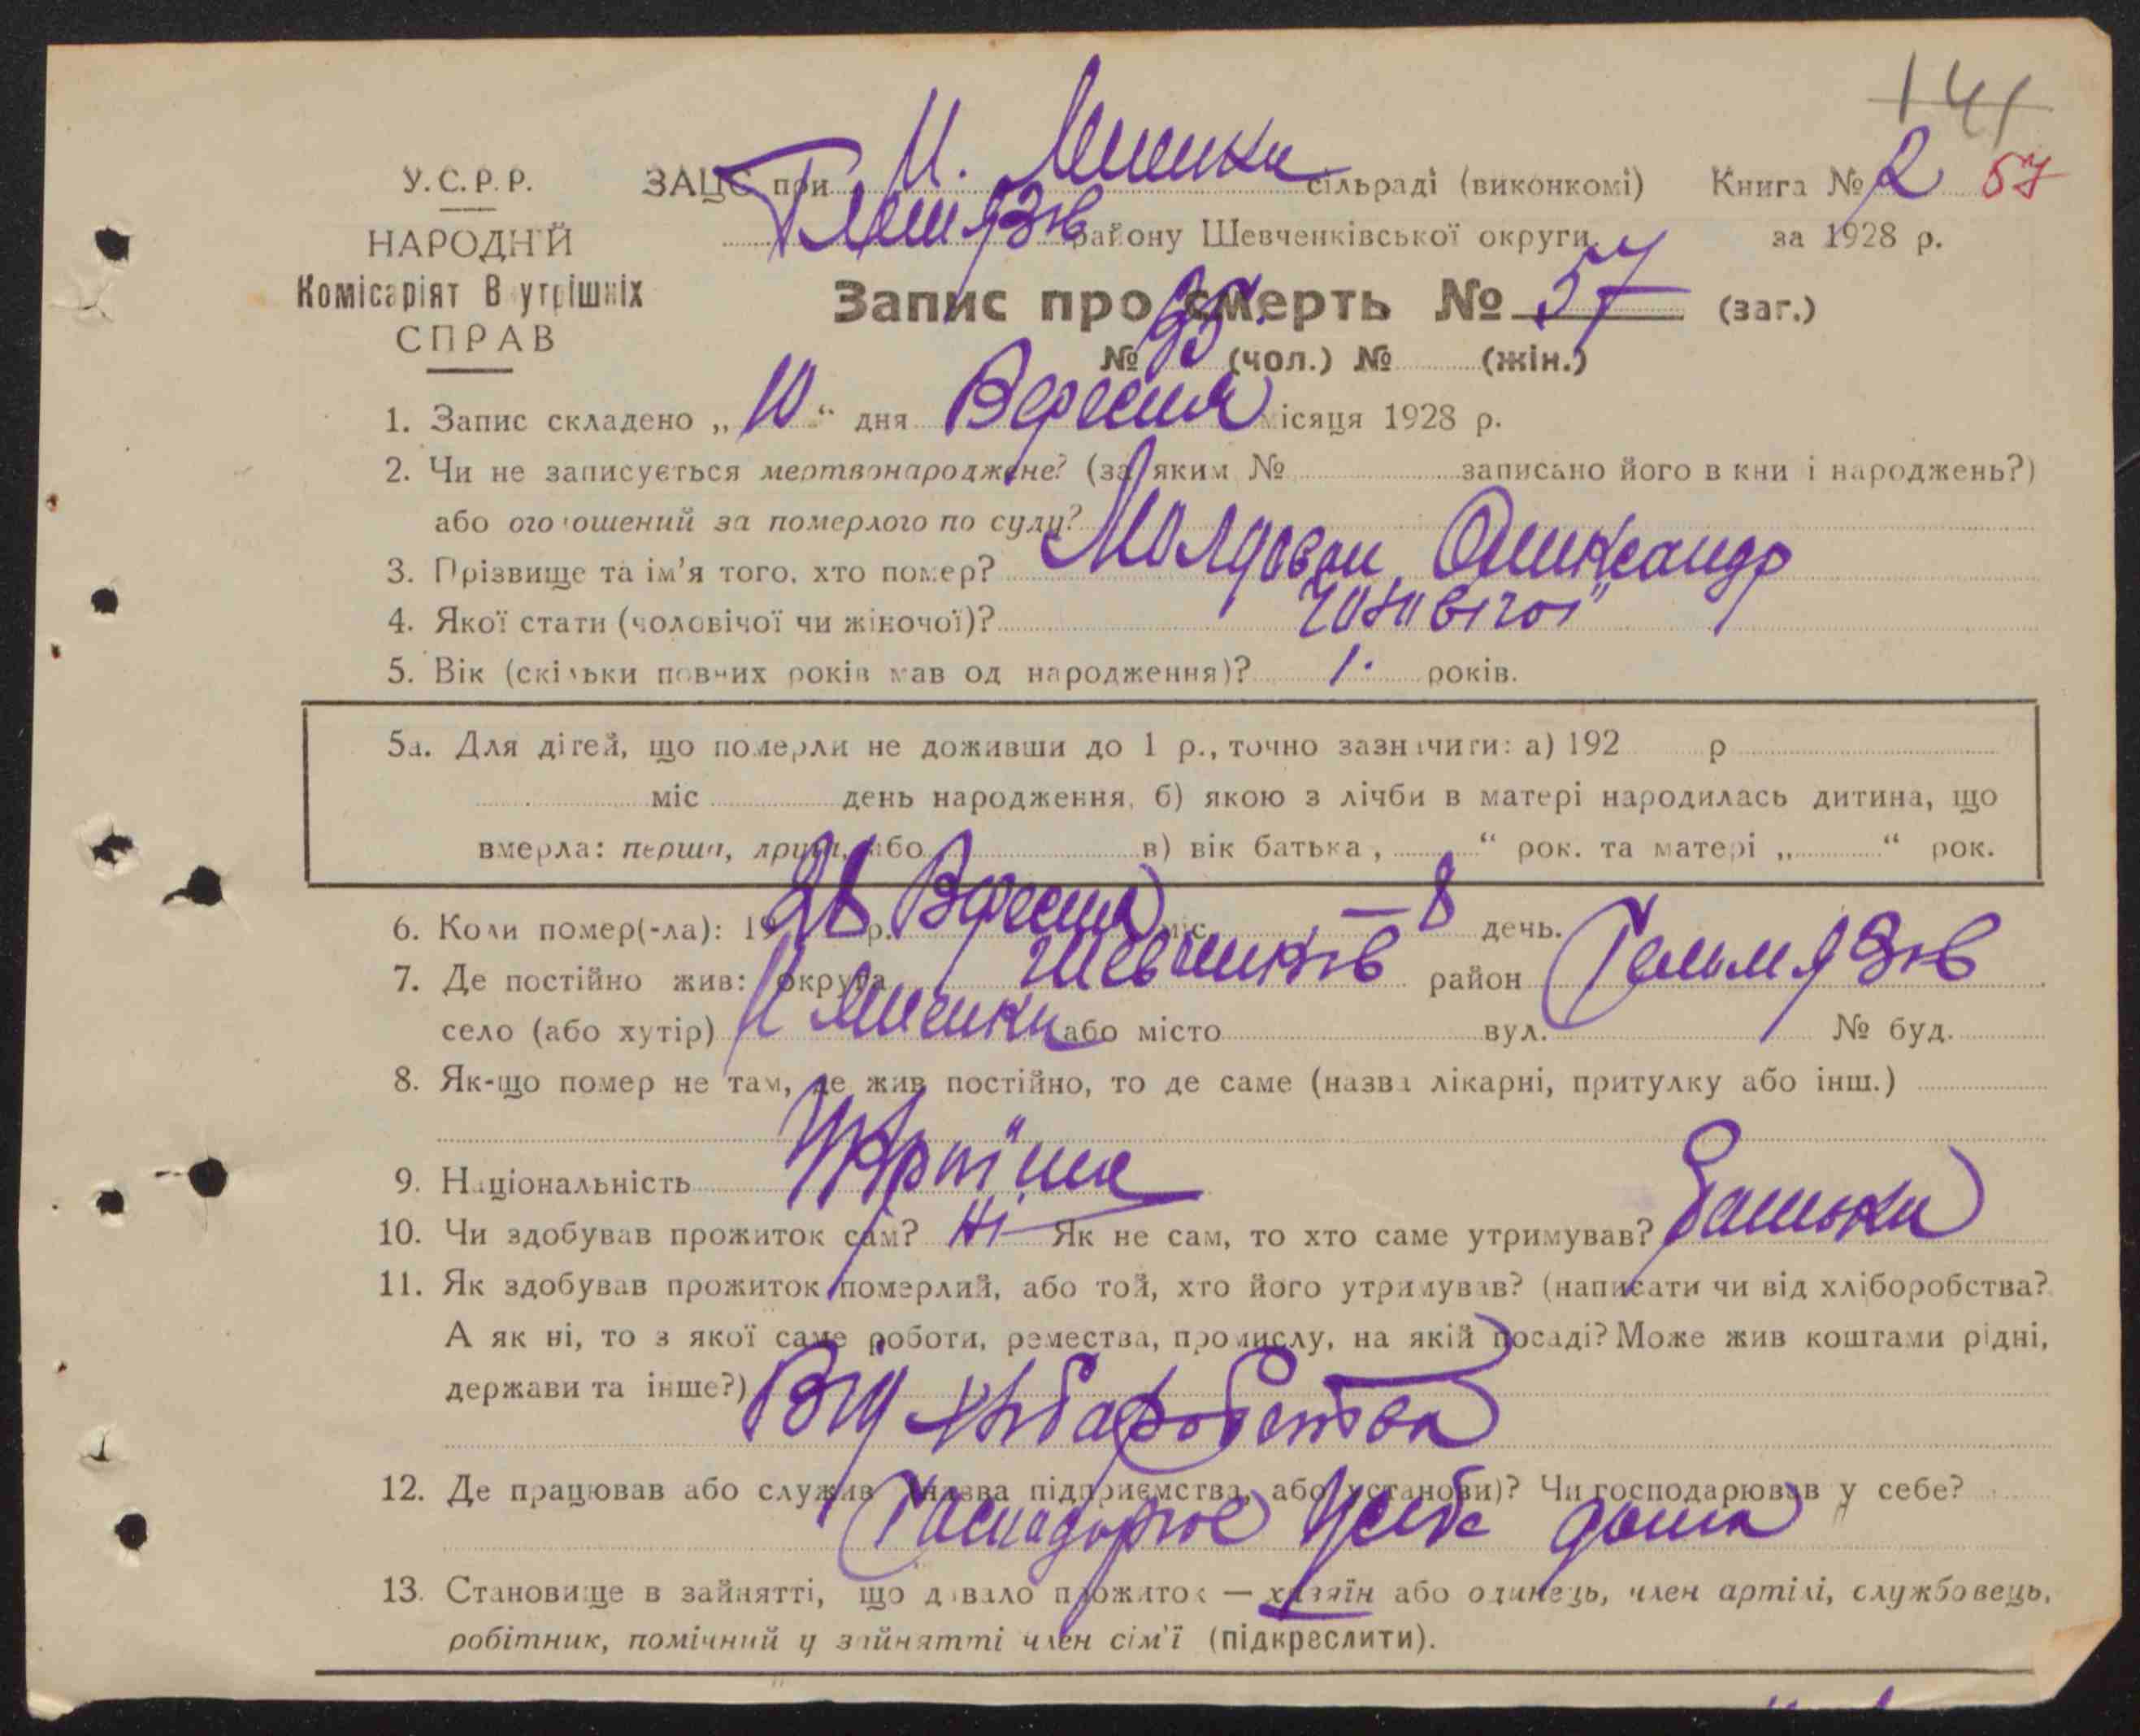 141
У.С.Р.Р.
НАРОДНІЙ
Комісаріят Внутрішніх
СПРАВ
ЗАЦС при сільраді (виконкомі) Книга № 2 57
району Шевченківської округи за 1928 р.
Запис про смерть № 57 (заг.)
№ 35 (чол.) № (жін.)
1. Запис складено „10“ дня Вересня місяця 1928 р.
2. Чи не записується мертвонароджене? (за яким № записано його в книзі народжень?)
або оголошений за померлого по суду?
3. Прізвище та ім'я того, хто помер? Молдован Олександр
4. Якої стати (чоловічої чи жіночої)? чоловічої
5. Вік (скільки повних років мав од народження)? 1. років.
5а. Для дітей, що померли не доживши до 1 р., точно зазначити: а) 192 р
міс день народження, б) якою з лічби в матері народилась дитина, що
вмерла: перша, друга, або в) вік батька „ “ рок. та матері „ “ рок.
6. Коли помер(-ла): 1928 р. Вересня міс. – 8 день.
7. Де постійно жив: округа Шевченків район Гельмязів
село (або хутір) або місто вул. № буд.
8. Як-що помер не там, де жив постійно, то де саме (назва лікарні, притулку або інш.)
9. Національність
10. Чи здобував прожиток сам? Ні Як не сам, то хто саме утримував? Батьки
11. Як здобував прожиток померлий, або той, хто його утримував? (написати чи від хліборобства?
А як ні, то з якої саме роботи, ремества, промислу, на якій посаді? Може жив коштами рідні,
держави та інше?) Від хліборобства
12. Де працював або служив (назва підприємства, або установи)? Чи господарював у себе?
у себе дома
13. Становище в зайнятті, що давало прожиток — хазяїн або одинець, член артілі, службовець,
робітник, помічний у зайнятті член сім'ї (підкреслити).